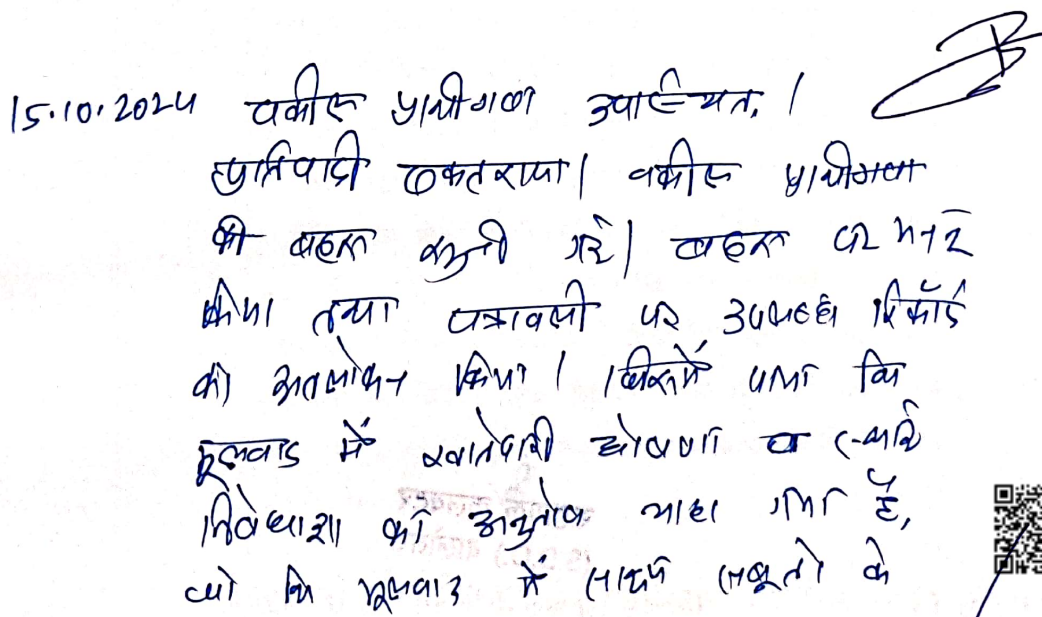 15.10.2024 वकील प्रार्थीगण उपस्थित।
प्रतिवादी एकतरफा। वकील प्रार्थीगण
की बहस सुनी गई। बहस पर मनन
किया तथा पत्रावली पर उपलब्ध रिकॉर्ड
का अवलोकन किया। जिसमें पाया कि
मूलवाद में खातेदारी घोषणा व स्थाई
निषेधाज्ञा का अनुतोष चाहा गया है,
जो कि मूलवाद में साक्ष्य सबूतों के